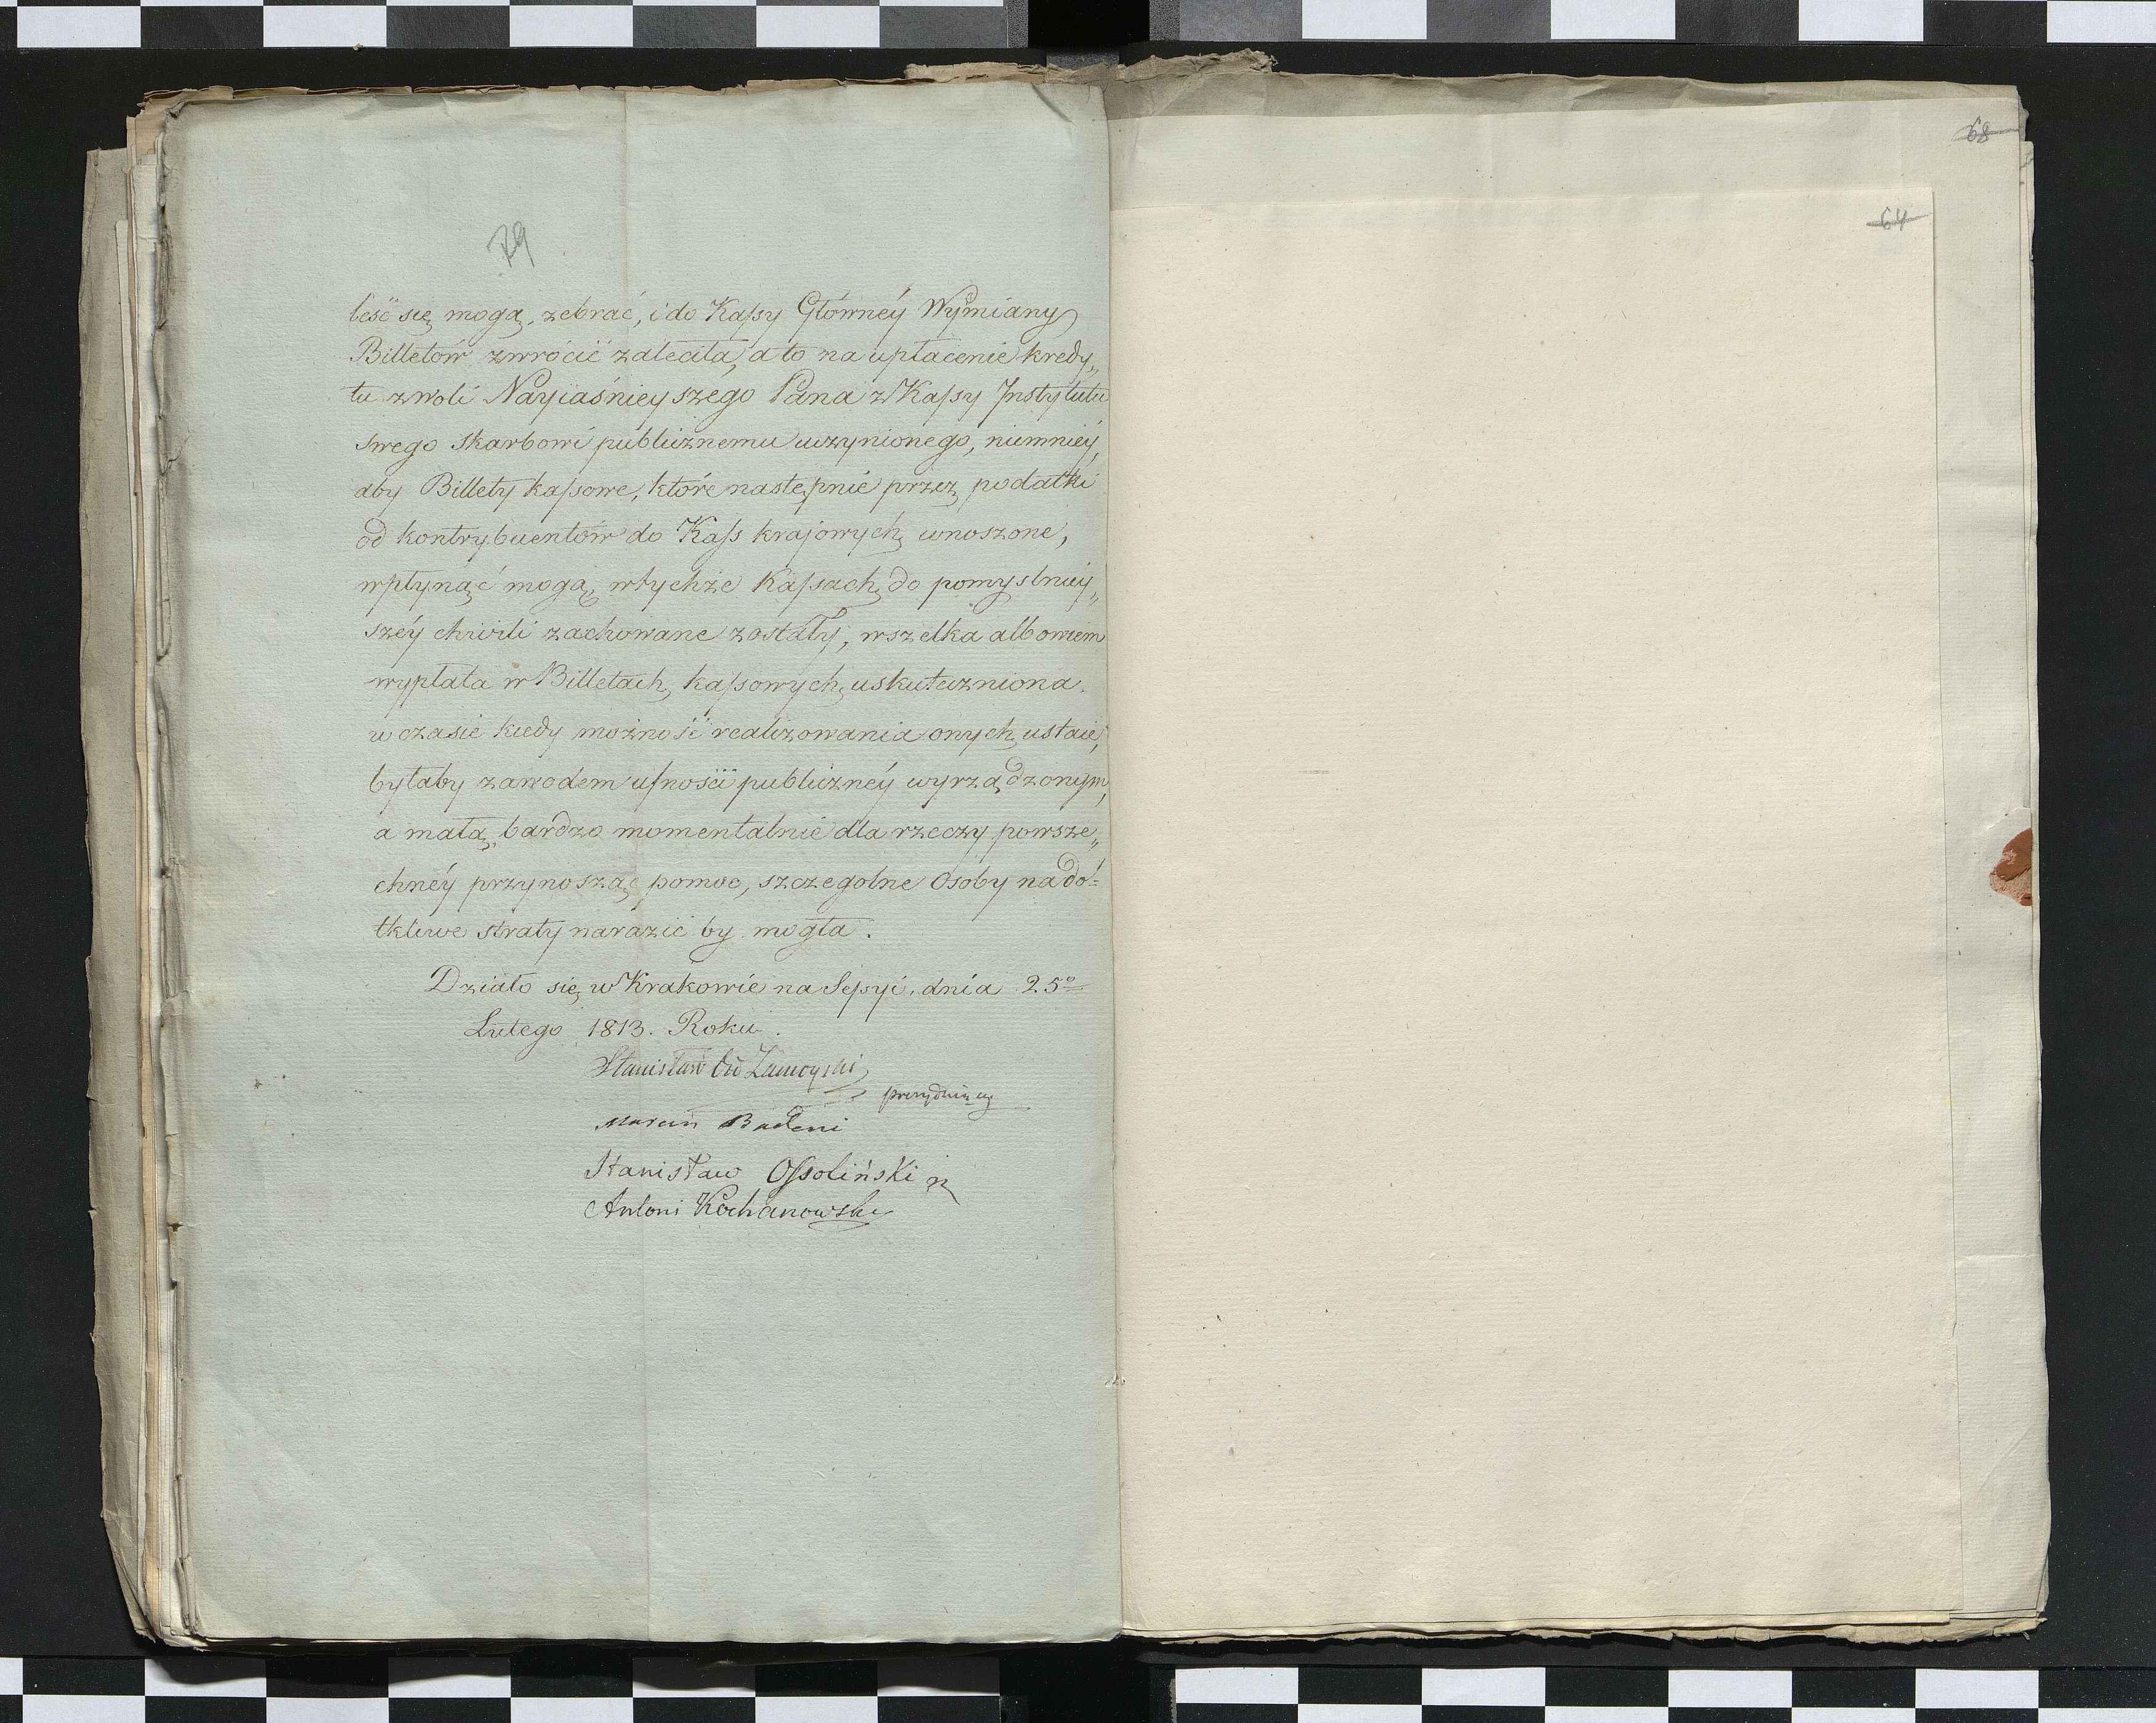 79
leść się mogą, zebrać, i do Kassy Główney Wymiany
Billetów zwrócić zaleciła, a to na upłacenie kredy„
tu z woli Nayiaśnieyszego Pana z Kassy Instytutu
swego skarbowi publicznemu uczynionego, niemniéy,
aby Billety kassowe, które następnie przez podatki
od kontrybuentów do Kass krajowych wnoszone,
wpłynąć mogą, w tychże Kassach do pomyslniéy„
széy chwili zachowane zostały, wszelka albowiem
wypłata w Billetach kassowych uskuteczniona
w czasie kiedy możność realizowania onych ustaie,
byłaby zawodem ufności publicznéy wyrządzonym,
a małą bardzo momentalnie dla rzeczy powsze„
chnéy przynosząc pomoc, szczegolne Osoby na do=
tkliwe straty narazić by mogła.
Działo się w Krakowie na Sessyi, dnia 25º
Lutego 1813. Roku.
Stanisław Or Zamoyski
prezyduiący
Marcin Badeni
Stanisław Ossoliński
Antoni Kochanowski
68
64